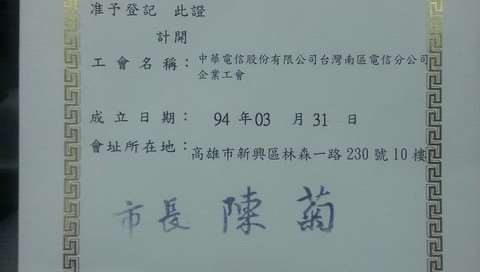 准予登記 此證
計開
工會名稱：中華電信股份有限公司台灣南區電信分公司
企業工會
成立日期：94年03月31日
會址所在地：高雄市新興區林森一路230號10樓
市長 陳菊